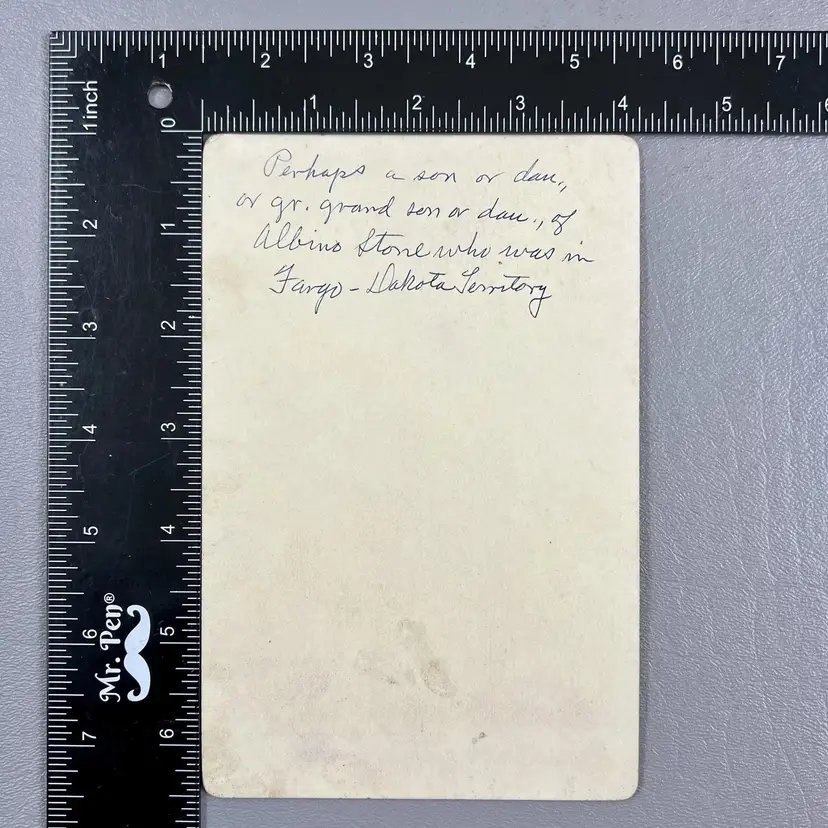 1 2 3 4 5 6 7
1inch
0 1 2 3 4 5
Perhaps a son or dau.,
or gr. grand son or dau., of
Albino Stone who was in
Fargo - Dakota Territory
2
3
4
5
6
7
1
2
3
4
5
6
Mr. Pen®